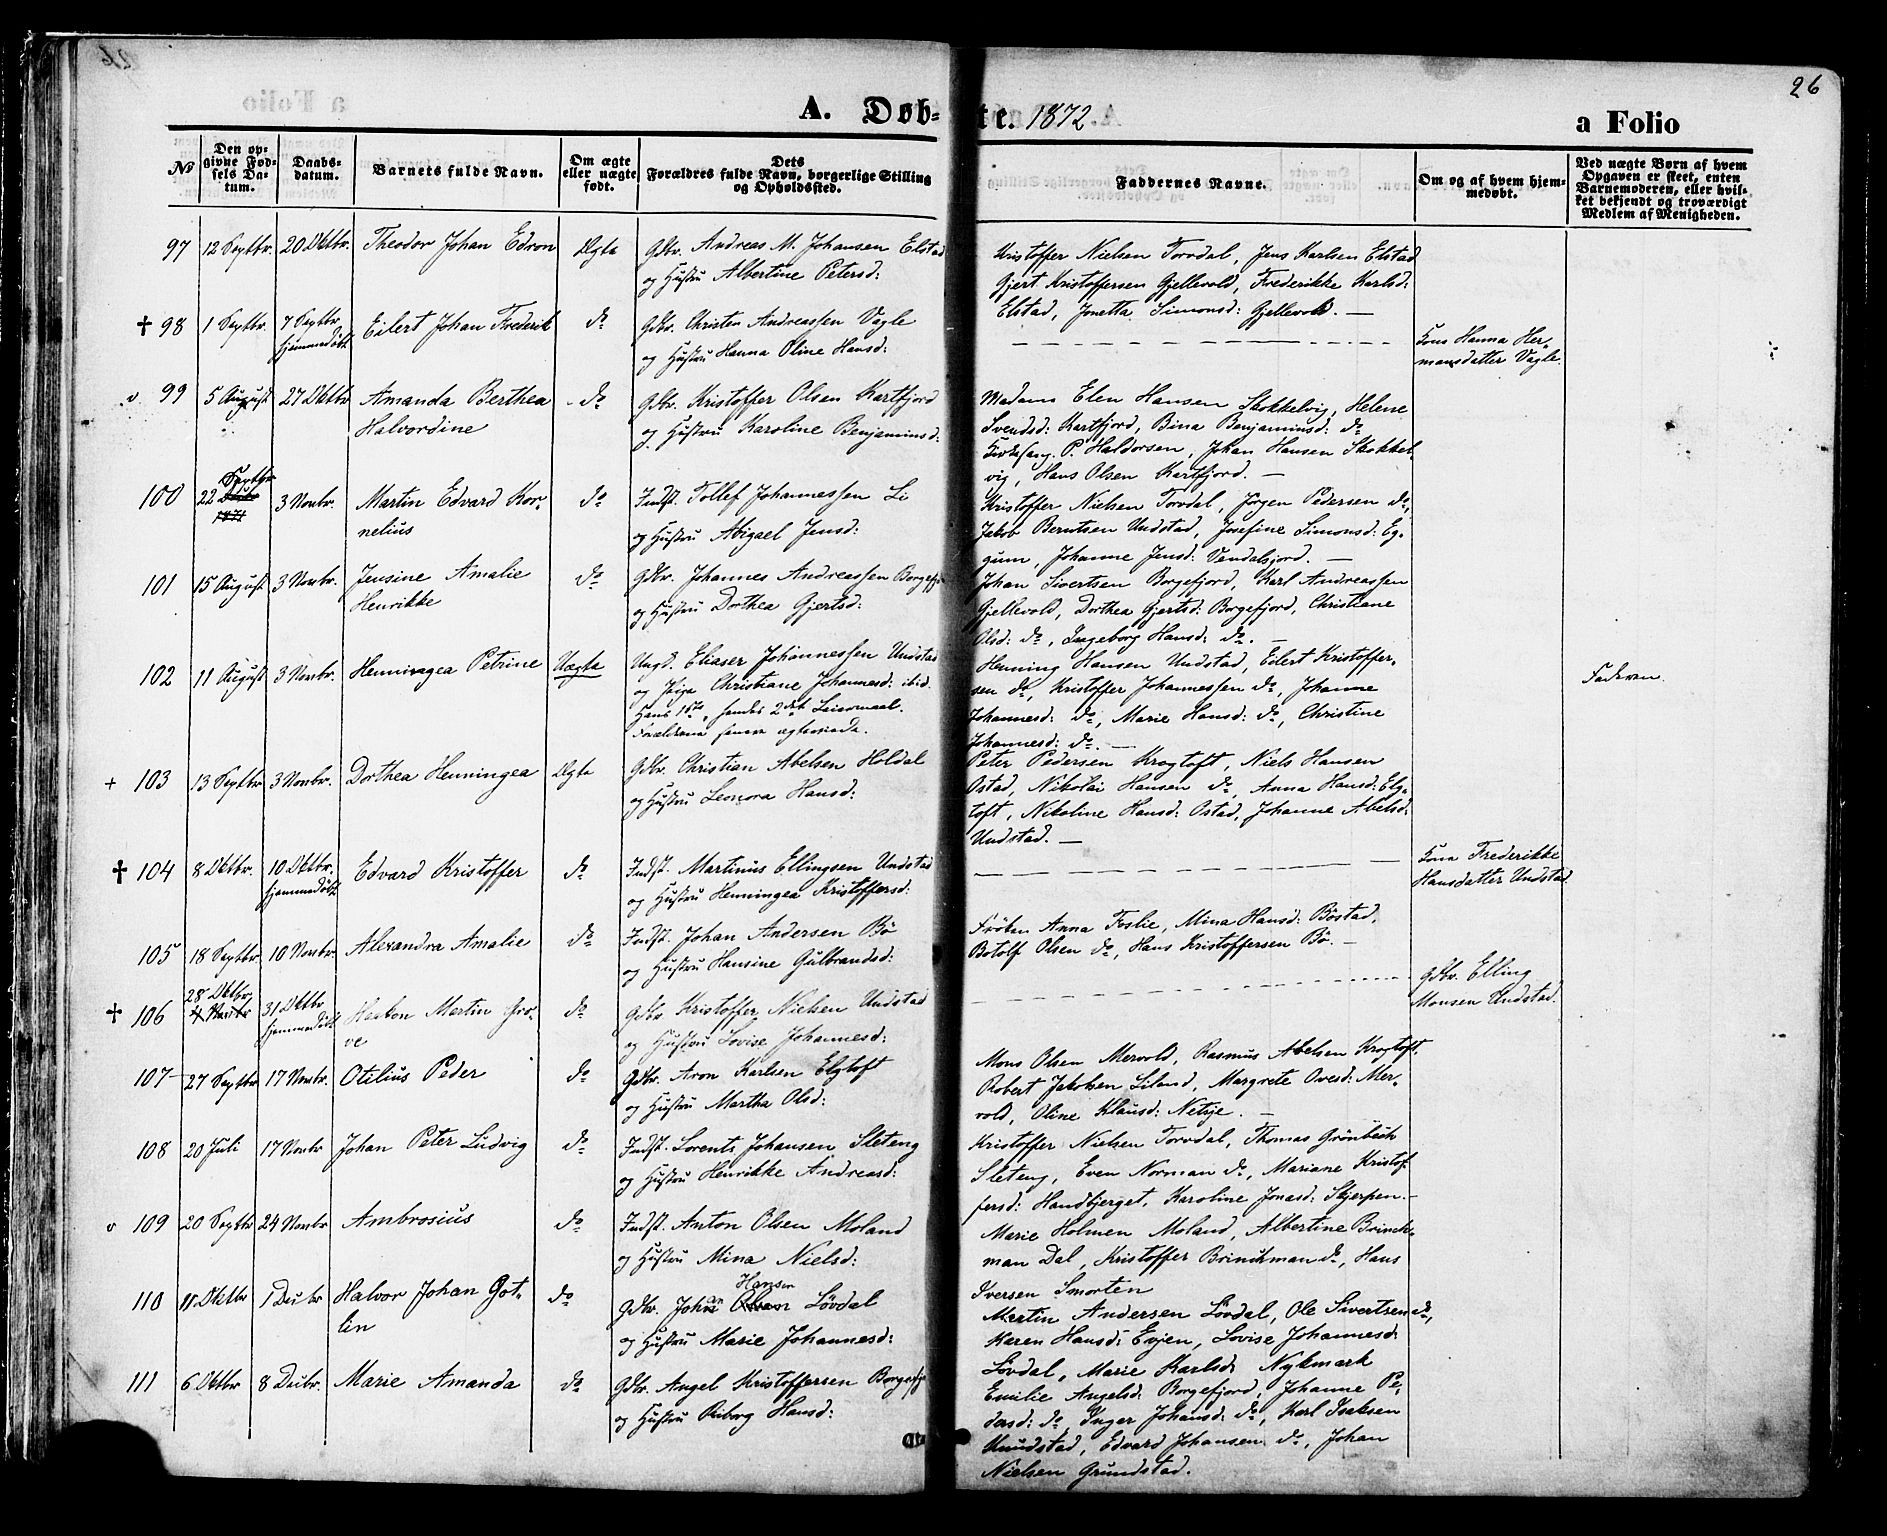 26
A. Døbte. 1872
a Folio
No
Den opgivne Fødsels Datum.
Daabsdatum.
Barnets fulde Navn.
Om ægte eller uægte født.
Dets Forældres fulde Navn, borgerlige Stilling og Opholdssted.
Faddernes Navne.
Om og af hvem hjemmedøbt.
Ved uægte Børn af hvem Opgaven er skeet, enten Barnemoderen, eller hvilket bekjendt og troværdigt Medlem af Menigheden.
97 12 Septbr. 20 Oktbr. Theodor Johan Edron Ægta Gdbr. Andreas M. Johansen Elstad
og Hustru Albertine Petersd:
Kristoffer Nielsen Torvdal, Jens Karlsen Elstad
Gjert Kristoffersen Gjellevold, Frederikke Karlsd:
Elstad, Jonetta Simonsd: Gjellevold. —
† 98 1 Septbr. 7 Septbr. hjemmedöbt Eilert Johan Frederik do Gdbr. Christen Andreassen Vagle
og Hustru Hanna Oline Hansd:
Kona Hanna Her-
mansdatter Vagle.
v 99 5 August 27 Oktbr Amanda Berthea do Gdbr. Kristoffer Olsen Kartfjord
Halvordine og Hustru Karoline Benjaminsd:
Madam Elen Hansen Stokkelvig, Helene
Svendsd: Kartfjord, Bina Benjaminsd: do
Kirkesang. P. Haldorsen, Johan Hansen Stokkel-
vig, Hans Olsen Kartfjord. —
100 22 Septbr 1871 3 Novbr. Martin Edvard Kor- do Indst. Tollef Johannessen Li
nelius og Hustru Abigael Jensd:
Kristoffer Nielsen Torvdal, Jörgen Pedersen do,
Jakob Berntsen Undstad, Josefine Simonsd: Eg-
gum, Johanne Jensd: Vendalsjord. —
101 15 August 3 Novbr. Jensine Amalie do Gdbr. Johannes Andreassen Borgefj
Henrikke og Hustru Dorthea Gjertsd:
Johan Sivertsen Borgefjord, Karl Andreassen
Gjellevold, Dorthea Gjertsd: Borgefjord, Christiane
Olsd: do, Ingeborg Hansd: do. —
102 11 August 3 Novbr. Henningea Petrine Uægta Ungd. Eliaser Johannessen Undstad
og Pige Christiane Johannesd: ibid.
Hans 1ste, hendes 2det Leiermaal.
Forældrene senere ægteviede.
Henning Hansen Undstad, Eilert Kristoffer-
sen do, Kristoffer Johannessen do, Johanne
Johannesd: do, Marie Hansd: do, Christine
Johannesd: do. —
Faderen.
+ 103 13 Septbr 3 Novbr. Dorthea Henningea Ægta Gdbr. Christian Abelsen Holdal
og Hustru Leonora Hansd:
Peter Pedersen Krogtoft, Niels Hansen
Ostad, Nikolai Hansen do, Anna Hansd: Elg-
toft, Nikoline Hansd: Ostad, Johanne Abelsd:
Undstad. —
† 104 8 Oktbr. 10 Oktbr. hjemmedöbt Edvard Kristoffer do Indst. Martinus Ellingsen Undstad
og Hustru Henningea Kristoffersd:
Kona Frederikke
Hansdatter Undstad
105 18 Septbr. 10 Novbr. Alexandra Amalie do Indst. Johan Andersen Bö
og Hustru Hansine Gulbrandsd:
Fröken Anna Foslie, Mina Hansd: Böstad,
Botolf Olsen do, Hans Kristoffersen Bö. —
† 106 28 Oktbr, 4 Novbr 31 Oktbr hjemmedöbt Haakon Martin Gro- do Gdbr. Kristoffer Nielsen Undstad
ve og Hustru Lovise Johannesd:
Gdbr. Elling
Monsen Undstad.
107 27 Septbr 17 Novbr. Otilius Peder do Gdbr. Aron Karlsen Elgtoft
og Hustru Martha Olsd:
Mons Olsen Mervold, Rasmus Abelsen Krogtoft,
Robert Jakobsen Liland, Margrete Ovesd: Mer-
vold, Oline Klausd: Netije. —
108 20 Juli 17 Novbr Johan Peter Ludvig do Indst. Lorents Johansen Sleteng
og Hustru Henrikke Andreasd:
Kristoffer Nielsen Torvdal, Thomas Grönbech
Sleteng, Even Norman do, Mariane Kristof-
fersd: Handbjerget, Karoline Jonasd: Skjerpen. —
v 109 20 Septbr 24 Novbr Ambrosius do Indst. Anton Olsen Moland
og Hustru Mina Nielsd:
Marie Holmen Moland, Albertine Brinck-
man Dal, Kristoffer Brinckman do, Hans
Iversen Smorten
110 11 Oktbr 1 Decbr Halvor Johan Got- do Gdbr. Johan Olsen Hansen Lövdal
lin og Hustru Marie Johannesd:
Martin Andersen Lövdal, Ole Sivertsen do,
Karen Hansd: Evjen, Lovise Johannesd:
Lövdal, Marie Karlsd: Nykmark
111 6 Oktbr 8 Decbr. Marie Amanda do Gdbr. Angel Kristoffersen Borgefj
og Hustru Riborg Hansd:
Emilie Angelsd: Borgefjord, Johanne Pe-
dersd: do, Inger Johansd: do, Karl Isaksen
Knudstad, Edvard Johansen do, Johan
Nielsen Grundstad.